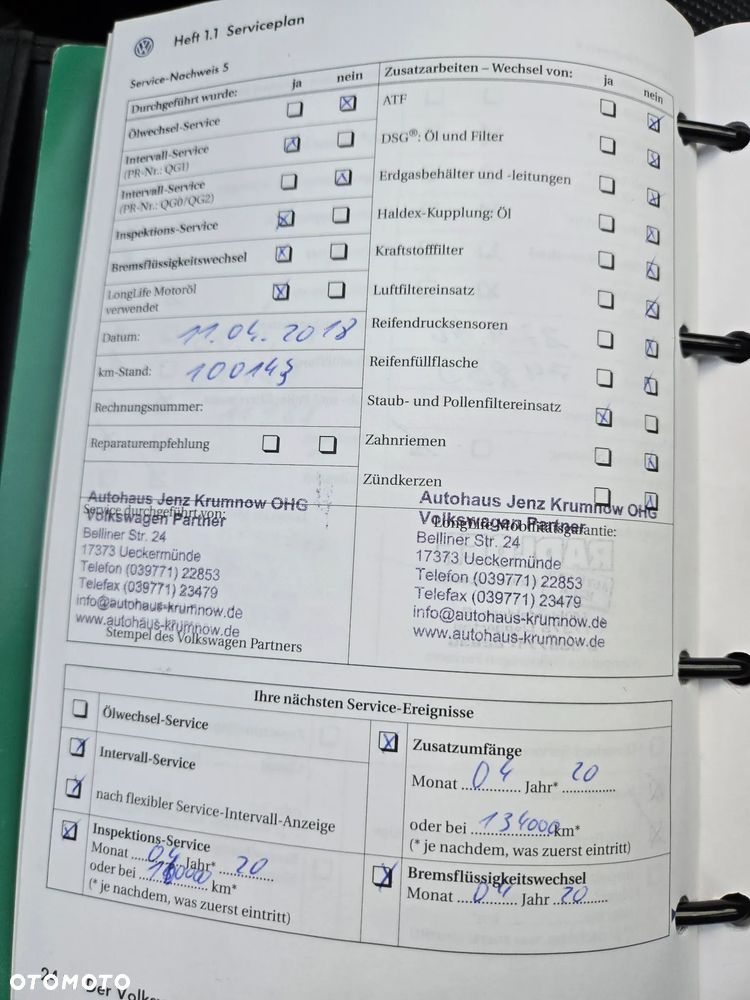 Heft 1.1 Serviceplan
Service-Nachweis 5
Durchgeführt wurde: ja nein
Ölwechsel-Service
Intervall-Service
(PR-Nr.: QG1)
Intervall-Service
(PR-Nr.: QG0/QG2)
Inspektions-Service
Bremsflüssigkeitswechsel
LongLife Motoröl
verwendet
Datum: 11.04.2018
km-Stand: 100143
Rechnungsnummer:
Reparaturempfehlung
Zusatzarbeiten – Wechsel von: ja nein
ATF
DSG®: Öl und Filter
Erdgasbehälter und -leitungen
Haldex-Kupplung: Öl
Kraftstofffilter
Luftfiltereinsatz
Reifendrucksensoren
Reifenfüllflasche
Staub- und Pollenfiltereinsatz
Zahnriemen
Zündkerzen
Autohaus Jenz Krumnow OHG
Service durchgeführt von:
Volkswagen Partner
Belliner Str. 24
17373 Ueckermünde
Telefon (039771) 22853
Telefax (039771) 23479
info@autohaus-krumnow.de
www.autohaus-krumnow.de
Stempel des Volkswagen Partners
Autohaus Jenz Krumnow OHG
Volkswagen Partner
LongLife Mobilitätsgarantie:
Belliner Str. 24
17373 Ueckermünde
Telefon (039771) 22853
Telefax (039771) 23479
info@autohaus-krumnow.de
www.autohaus-krumnow.de
Ihre nächsten Service-Ereignisse
Ölwechsel-Service
Intervall-Service
nach flexibler Service-Intervall-Anzeige
Inspektions-Service
Monat 04 Jahr* 20
oder bei km*
(* je nachdem, was zuerst eintritt)
Zusatzumfänge
Monat 04 Jahr* 20
oder bei 134000 km*
(* je nachdem, was zuerst eintritt)
Bremsflüssigkeitswechsel
Monat 04 Jahr 20
24 Der
OTOMOTO